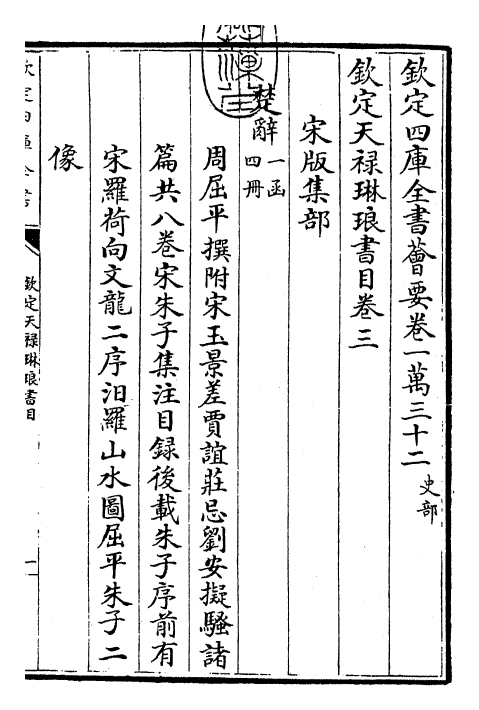 欽定四庫全書薈要卷一萬三十二 史部
欽定天禄琳琅書目卷三
宋版集部
楚辭 一函四冊
周屈平撰附宋玉景差賈誼莊忌劉安擬騷諸
篇共八卷宋朱子集注目録後載朱子序前有
宋羅荷向文龍二序汨羅山水圖屈平朱子二
像
欽定四庫全書
欽定天禄琳琅書目
一